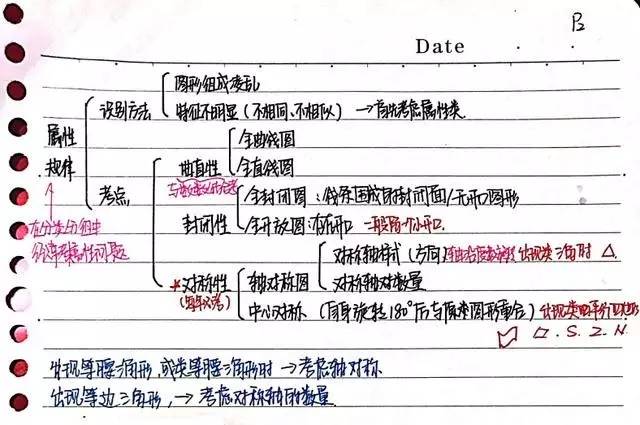 B
Date
图形组成凌乱
识别方法
特征不明显(不相同、不相似) →首先考虑属性类
属性
规律
全曲线图
曲直性
全直线图
考点
全封闭图:线条围成的封闭面/无开口图形
封闭性
全开放图:有开口 一般留一个小开口.
在分类分组中
对称轴样式(方向) 出现类三角时 △.
*对称性
轴对称图
对称轴对数量
(每年必考)
中心对称 (自身旋转180°后与原来图形重合) 出现类平行四边形
▱.S.Z.N.
出现等腰三角形,或类等腰三角形时 →考虑轴对称
出现等边三角形,→考虑对称轴的数量